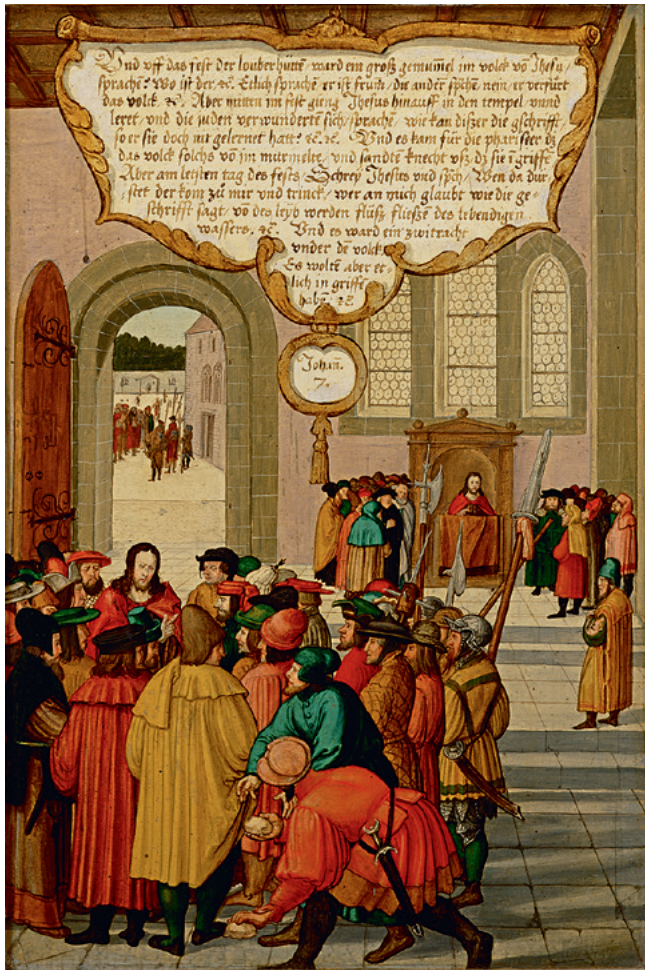 Vnd vff das fest der louberhüttē ward ein groß gemümel im volck vō Jhesu /
sprachē: Wo ist der ⁊c̄. Etlich sprachē er ist frum / die andern sp̄chē nein / er verfürt
das volck ⁊c̄. Aber mitten im fest gieng Jhesus hinauff in den tempel vnnd
leret / vnd die juden verwunderte͂ sich / sprachē / wie kan diszer die gschrifft /
so er sie doch nit gelernet hatt? ⁊c̄. ⁊c̄. Vnd es kam für die phariseer dz
das volck solchs vō im murmelte / vnd sandtē knecht vsz / dz sie ī griffē
Aber am letstē tag des fests / Schrey Jhesus vnd sp̄ch / Wen da dür-
stet der kom zů mir vnd trinck / wer an mich glaubt wie die ge-
schrifft sagt / vō des leyb werden flüsz flieszen des lebendigen
wassers. ⁊c̄. Vnd es ward ein zwitracht
vnder dē volck
Es woltē aber et-
lich in griffē
habē. ⁊c̄
Johan̄.
7.